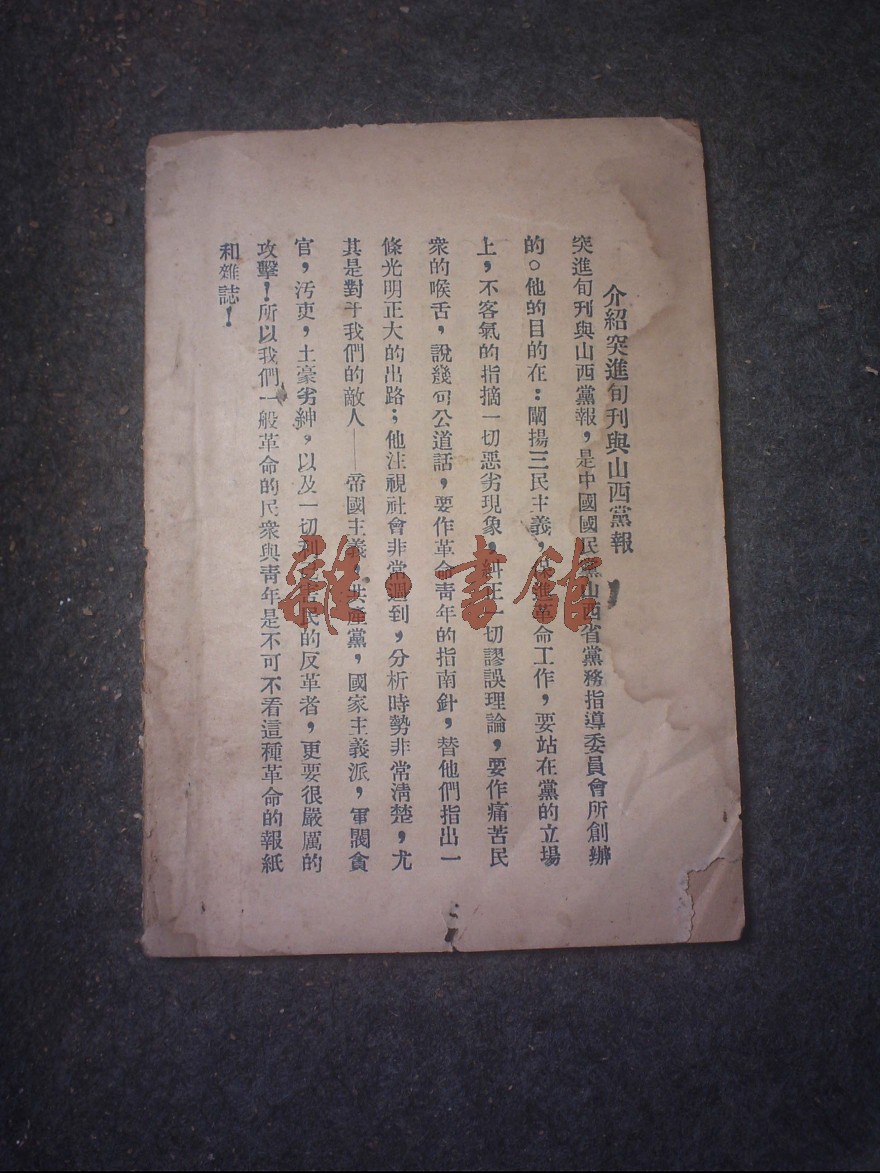 介紹突進旬刊與山西黨報
突進旬刊與山西黨報,是中國國民黨山西省黨務指導委員會所創辦
的。他的目的在:闡揚三民主義,進革命工作,要站在黨的立場
上,不客氣的指摘一切惡劣現象,糾正一切謬誤理論,要作痛苦民
衆的喉舌,說幾句公道話,要作革命靑年的指南針,替他們指出一
條光明正大的出路;他注視社會非常週到,分析時勢非常淸楚,尤
其是對于我們的敵人——帝國主義,共產黨,國家主義派,軍閥貪
官,汚吏,土豪劣紳,以及一切民的反革者,更要很嚴厲的
攻擊!所以我們一般革命的民衆與靑年是不可不看這種革命的報紙
和雜誌!
雜·書館